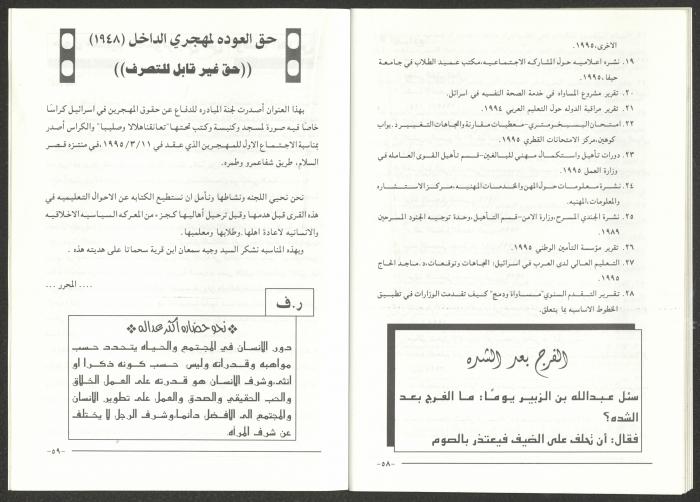 الاخرى،١٩٩٥.
١٩. نشره اعلاميه حول المشاركه الاجتماعيه،مكتب عميد الطلاب في جامعة
حيفا،١٩٩٥.
٢٠. تقرير مشروع المساواه في خدمة الصحة النفسيه في اسرائل.
٢١. تقرير مراقبة الدوله حول التعليم العربي ١٩٩٤.
٢٢. امتحان البسيخومتري-معطيات مقارنة واتجاهات التغيير د.يواب
كوهين،مركز الامتحانات القطري ١٩٩٥.
٢٣. دورات تأهيل واستكمال مهني للبالغين-قسم تأهيل القوى العامله في
وزارة العمل ١٩٩٥.
٢٤. نشرة معلومات حول المهن والخدمات المهنيه،مركز الاستشاره
والمعلومات،المهنيه.
٢٥. نشرة الجندي المسرح،وزارة الامن-قسم التأهيل،وحدة توجيه الجنود المسرحين
١٩٨٩.
٢٦. تقرير مؤسسة التأمين الوطني ١٩٩٥.
٢٧. التعليم العالي لدى العرب في اسرائيل: اتجاهات وتوقعات،د.ماجد الحاج
١٩٩٥.
٢٨. تقرير التقدم السنوي"مساواة ودمج" كيف تقدمت الوزارات في تطبيق
الخطوط الاساسيه بما يتعلق.
الفرج بعد الشده
سئل عبدالله بن الزبير يومًا: ما الفرج بعد
الشده؟
فقال: أن تحلف على الضيف فيعتذر بالصوم
-٥٨-
حق العوده لمهجري الداخل (١٩٤٨)
((حق غير قابل للتصرف))
بهذا العنوان أصدرت لجنة المبادره للدفاع عن حقوق المهجرين في اسرائيل كراسًا
خاصًا فيه صورة لمسجد وكنيسة وكتب تحتها"تعانقا هلالا وصليبا" والكراس أصدر
بمناسبة الاجتماع الاول للمهجرين الذي عقد في ١٩٩٥/٣/١١،في منتزه قصر
السلام، طريق شفاعمرو وطمره.
نحن نحيي اللجنه ونشاطها ونأمل ان نستطيع الكتابه عن الاحوال التعليميه في
هذه القرى قبل هدمها وقبل ترحيل أهاليها كجزء من المعركه السياسيه الاخلاقيه
والانسانيه لاعادة اهلها،وطلابها ومعلميها.
وبهذه المناسبه نشكر السيد وجيه سمعان ابن قرية سحماتا على هديته هذه .
.... المحرر ...
ر.ف
نحو حضاره أكثر عداله
دور الانسان في المجتمع والحياه يتحدد حسب
مواهبه وقدراته وليس حسب كونه ذكرا او
انثى،وشرف الانسان هو قدرته على العمل الخلاق
والحب الحقيقي والصدق والعمل على تطوير الانسان
والمجتمع الى الافضل دائما،وشرف الرجل لا يختلف
عن شرف المرأه.
-٥٩-